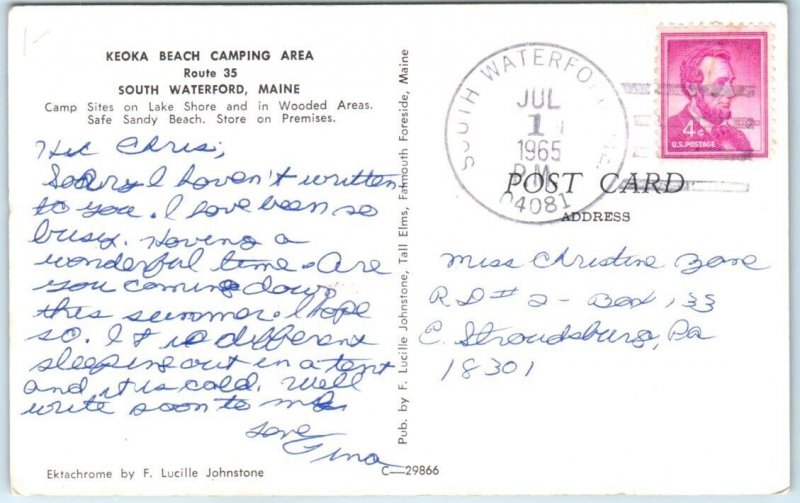 KEOKA BEACH CAMPING AREA
Route 35
SOUTH WATERFORD, MAINE
Camp Sites on Lake Shore and in Wooded Areas.
Safe Sandy Beach. Store on Premises.
Hi Chris,
Sorry I haven't written
to you. I have been so
busy. Having a
wonderful time. Are
you coming down
this summer. I hope
so. It is different
sleeping out in a tent
and it is cold. Well
write soon to me
Love
Tina
Ektachrome by F. Lucille Johnstone
C—29866
Pub. by F. Lucille Johnstone, Tall Elms, Falmouth Foreside, Maine
SOUTH WATERFORD, ME.
JUL
1
1965
P.M.
04081
LINCOLN
4¢
U.S. POSTAGE
POST CARD
ADDRESS
Miss Christine
RD # 2 - Box 133
E. Stroudsburg, Pa
18301